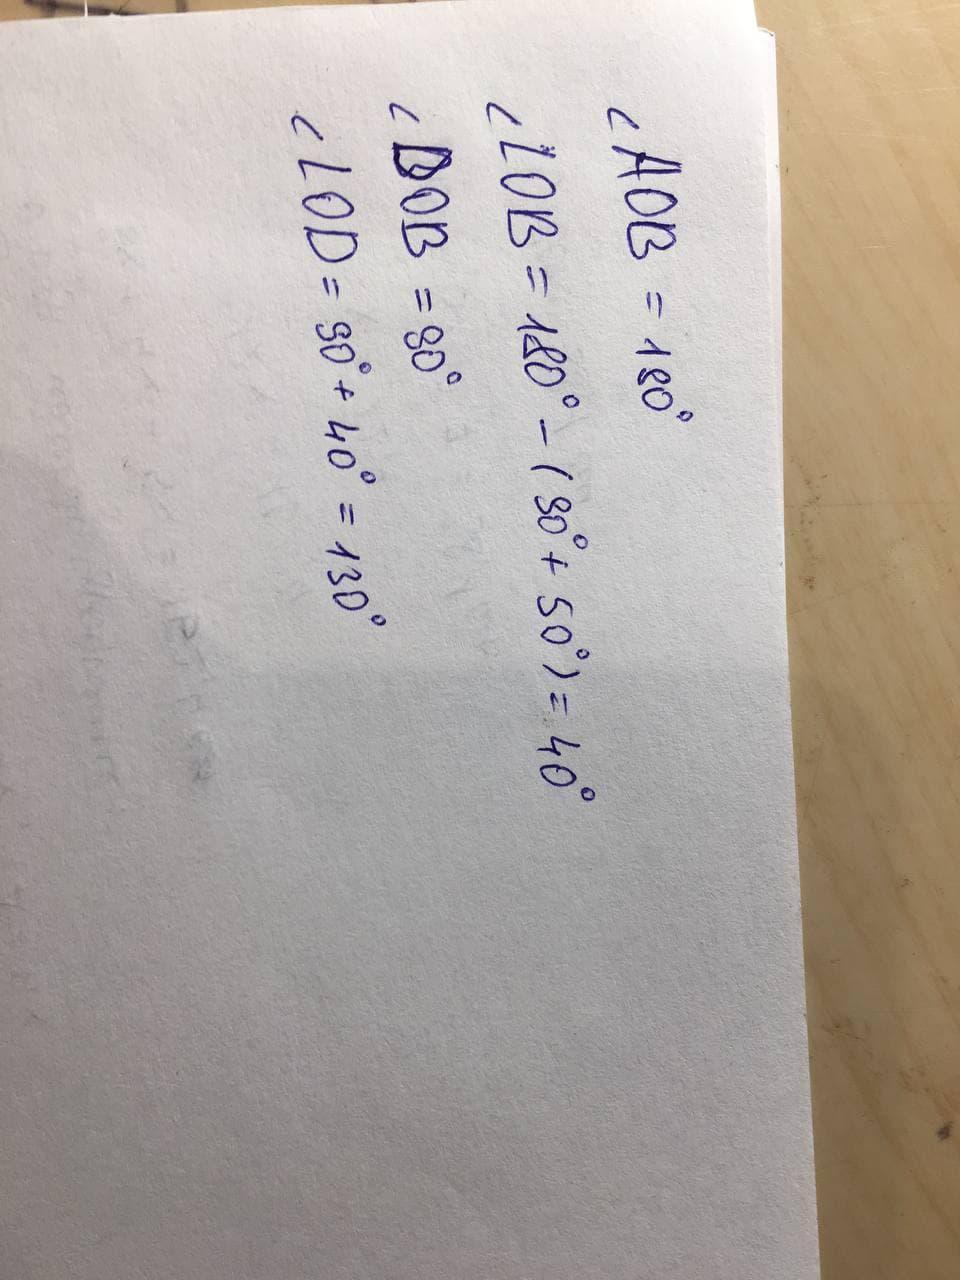 ∠AOB = 180°
∠LOB = 180° - (90° + 50°) = 40°
∠DOB = 90°
∠LOD = 90° + 40° = 130°